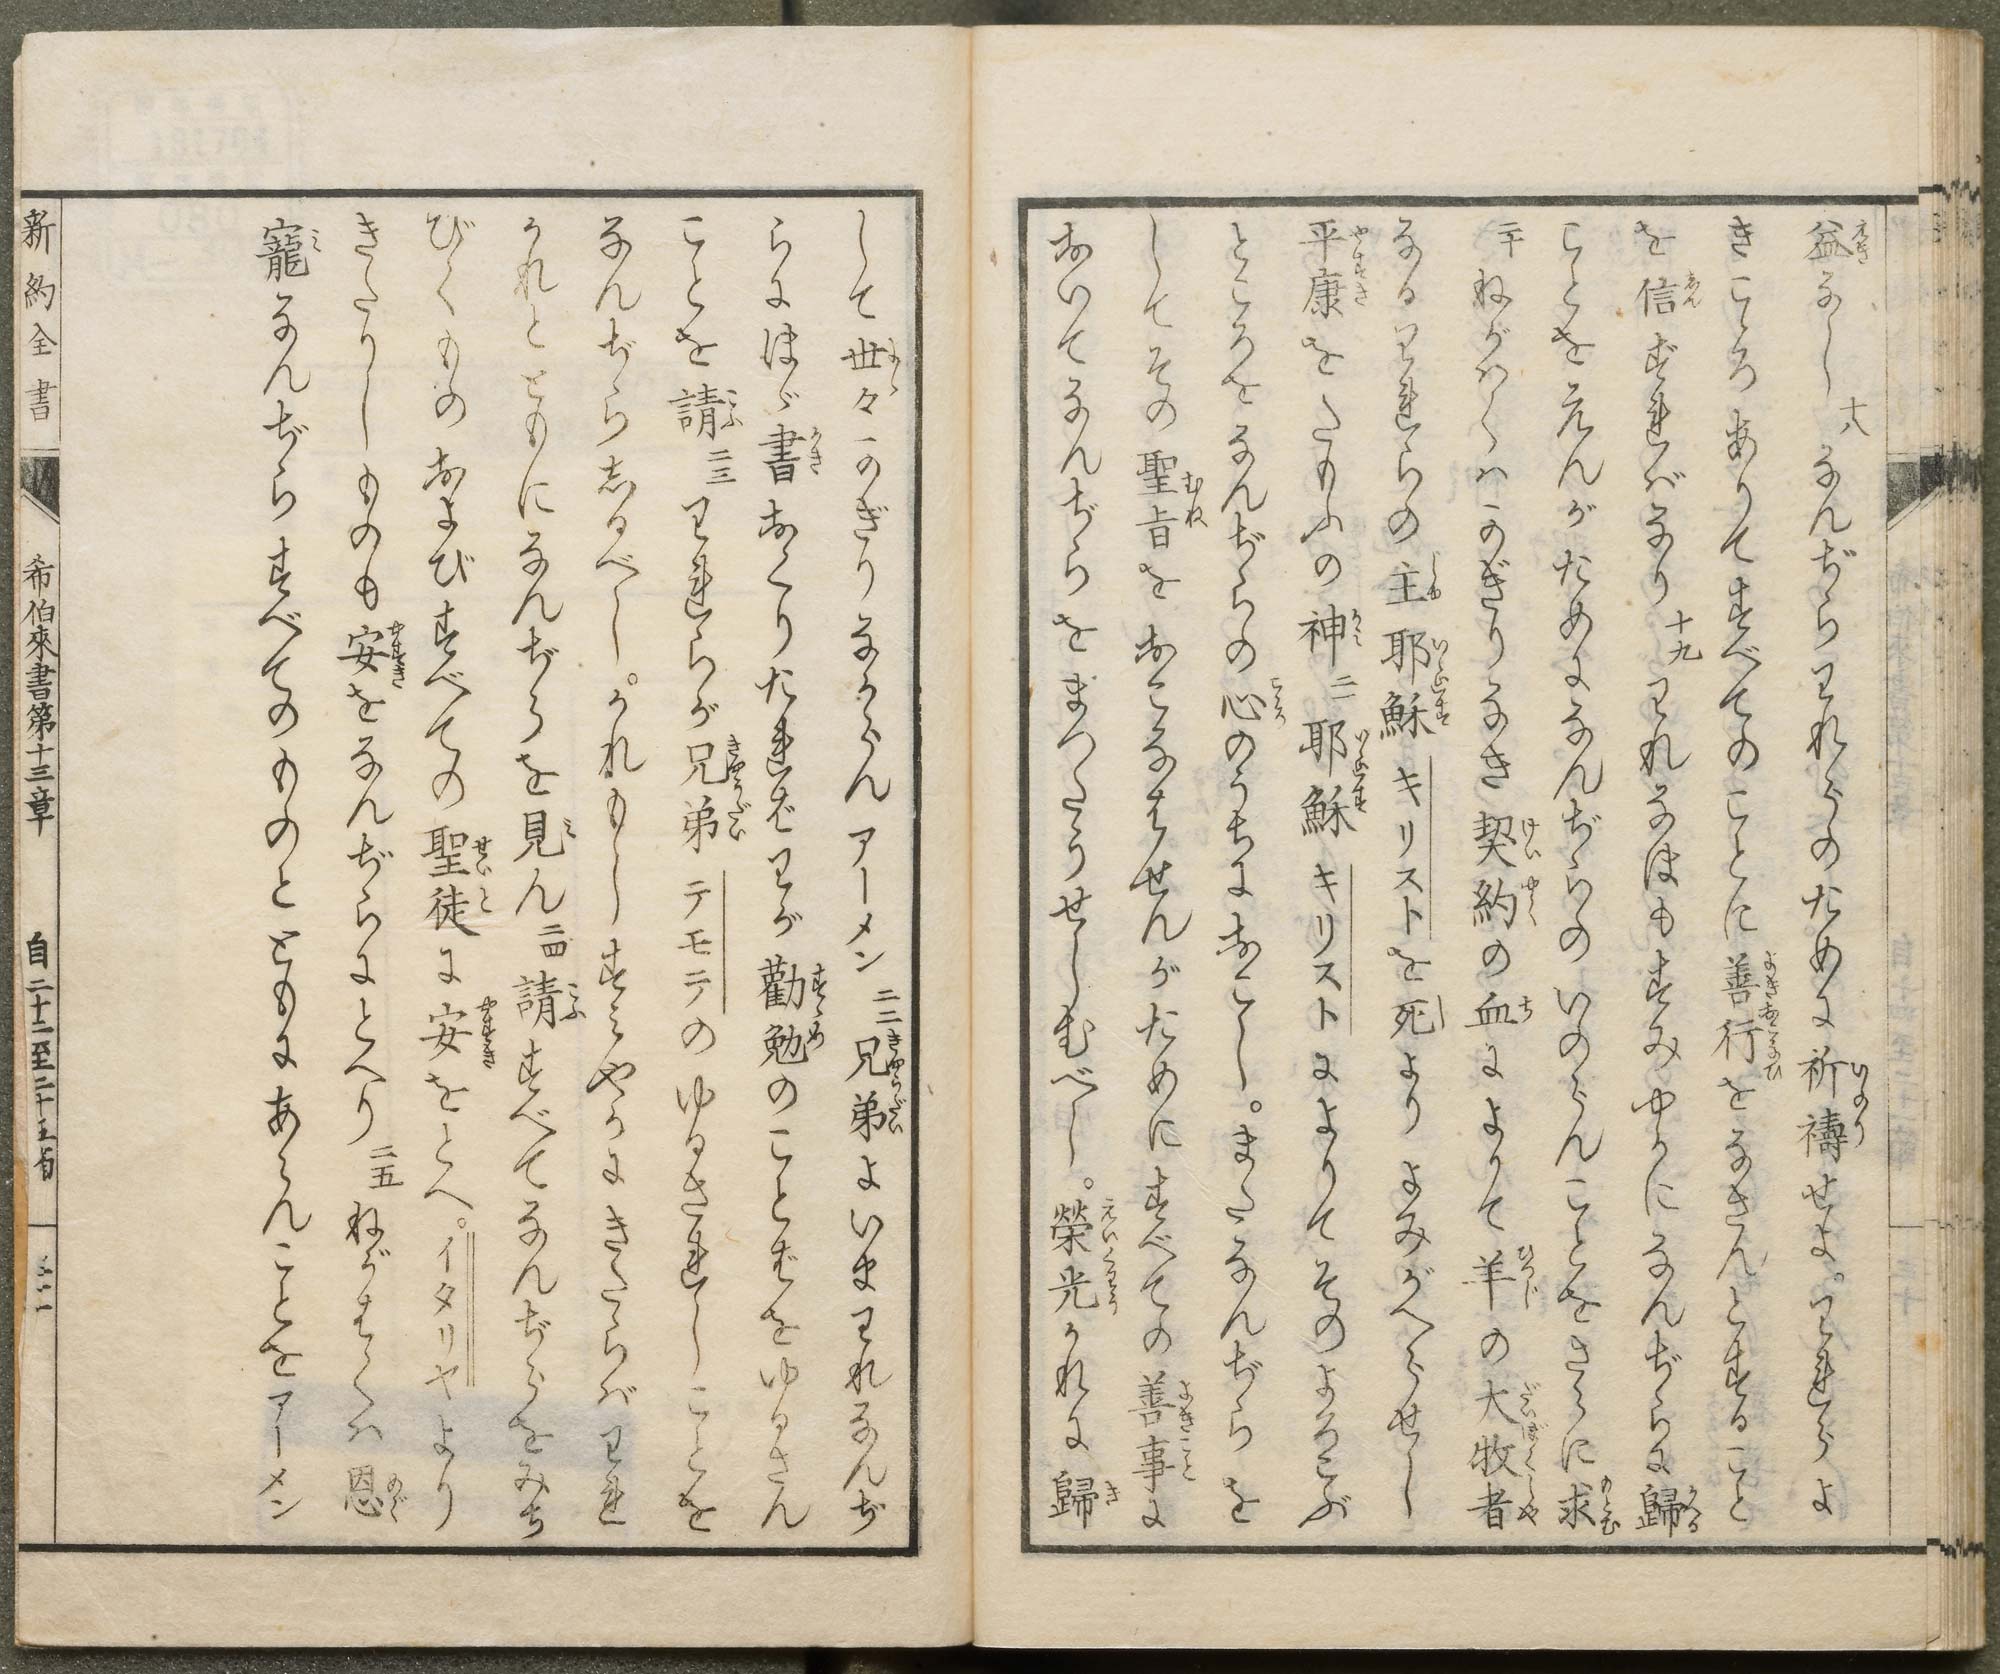 益なし 十八 なんぢらわれらのために祈禱せよ。われらよ
きこゝろありてすべてのことに善行をなさんとすること
を信ずればなり 十九 われなほもすみやかになんぢらに歸
ことをえんがためになんぢらのいのらんことをさらに求
二十 ねがはくハかぎりなき契約の血によりて羊の大牧者
なるわれらの主耶穌キリストを死よりよみがへらせし
平康をたもふの神 二一 耶穌キリストによりてそのよろこぶ
ところをなんぢらの心のうちにおこし。またなんぢらを
してその聖旨をおこなはせんがためにすべての善事に
おいてなんぢらをまつたうせしむべし。榮光かれに歸
して世々かぎりなからんアーメン 二二 兄弟よいまわれなんぢ
らにほゞ書おくりたればわが勸勉のことばをゆるさん
ことを請 二三 われらが兄弟テモテのゆるされしことを
なんぢら志るべし。かれもしすみやかにきたらばわれ
かれとともになんぢらを見ん 二四 請すべてなんぢらをみち
びくものおよびすべての聖徒に安をとへ。イタリヤより
きたりしものも安をなんぢらにとへり 二五 ねがはくハ恩
寵なんぢらすべてのものとともにあらんことをアーメン
新約全書 希伯來書第十三章 自二十二至二十五